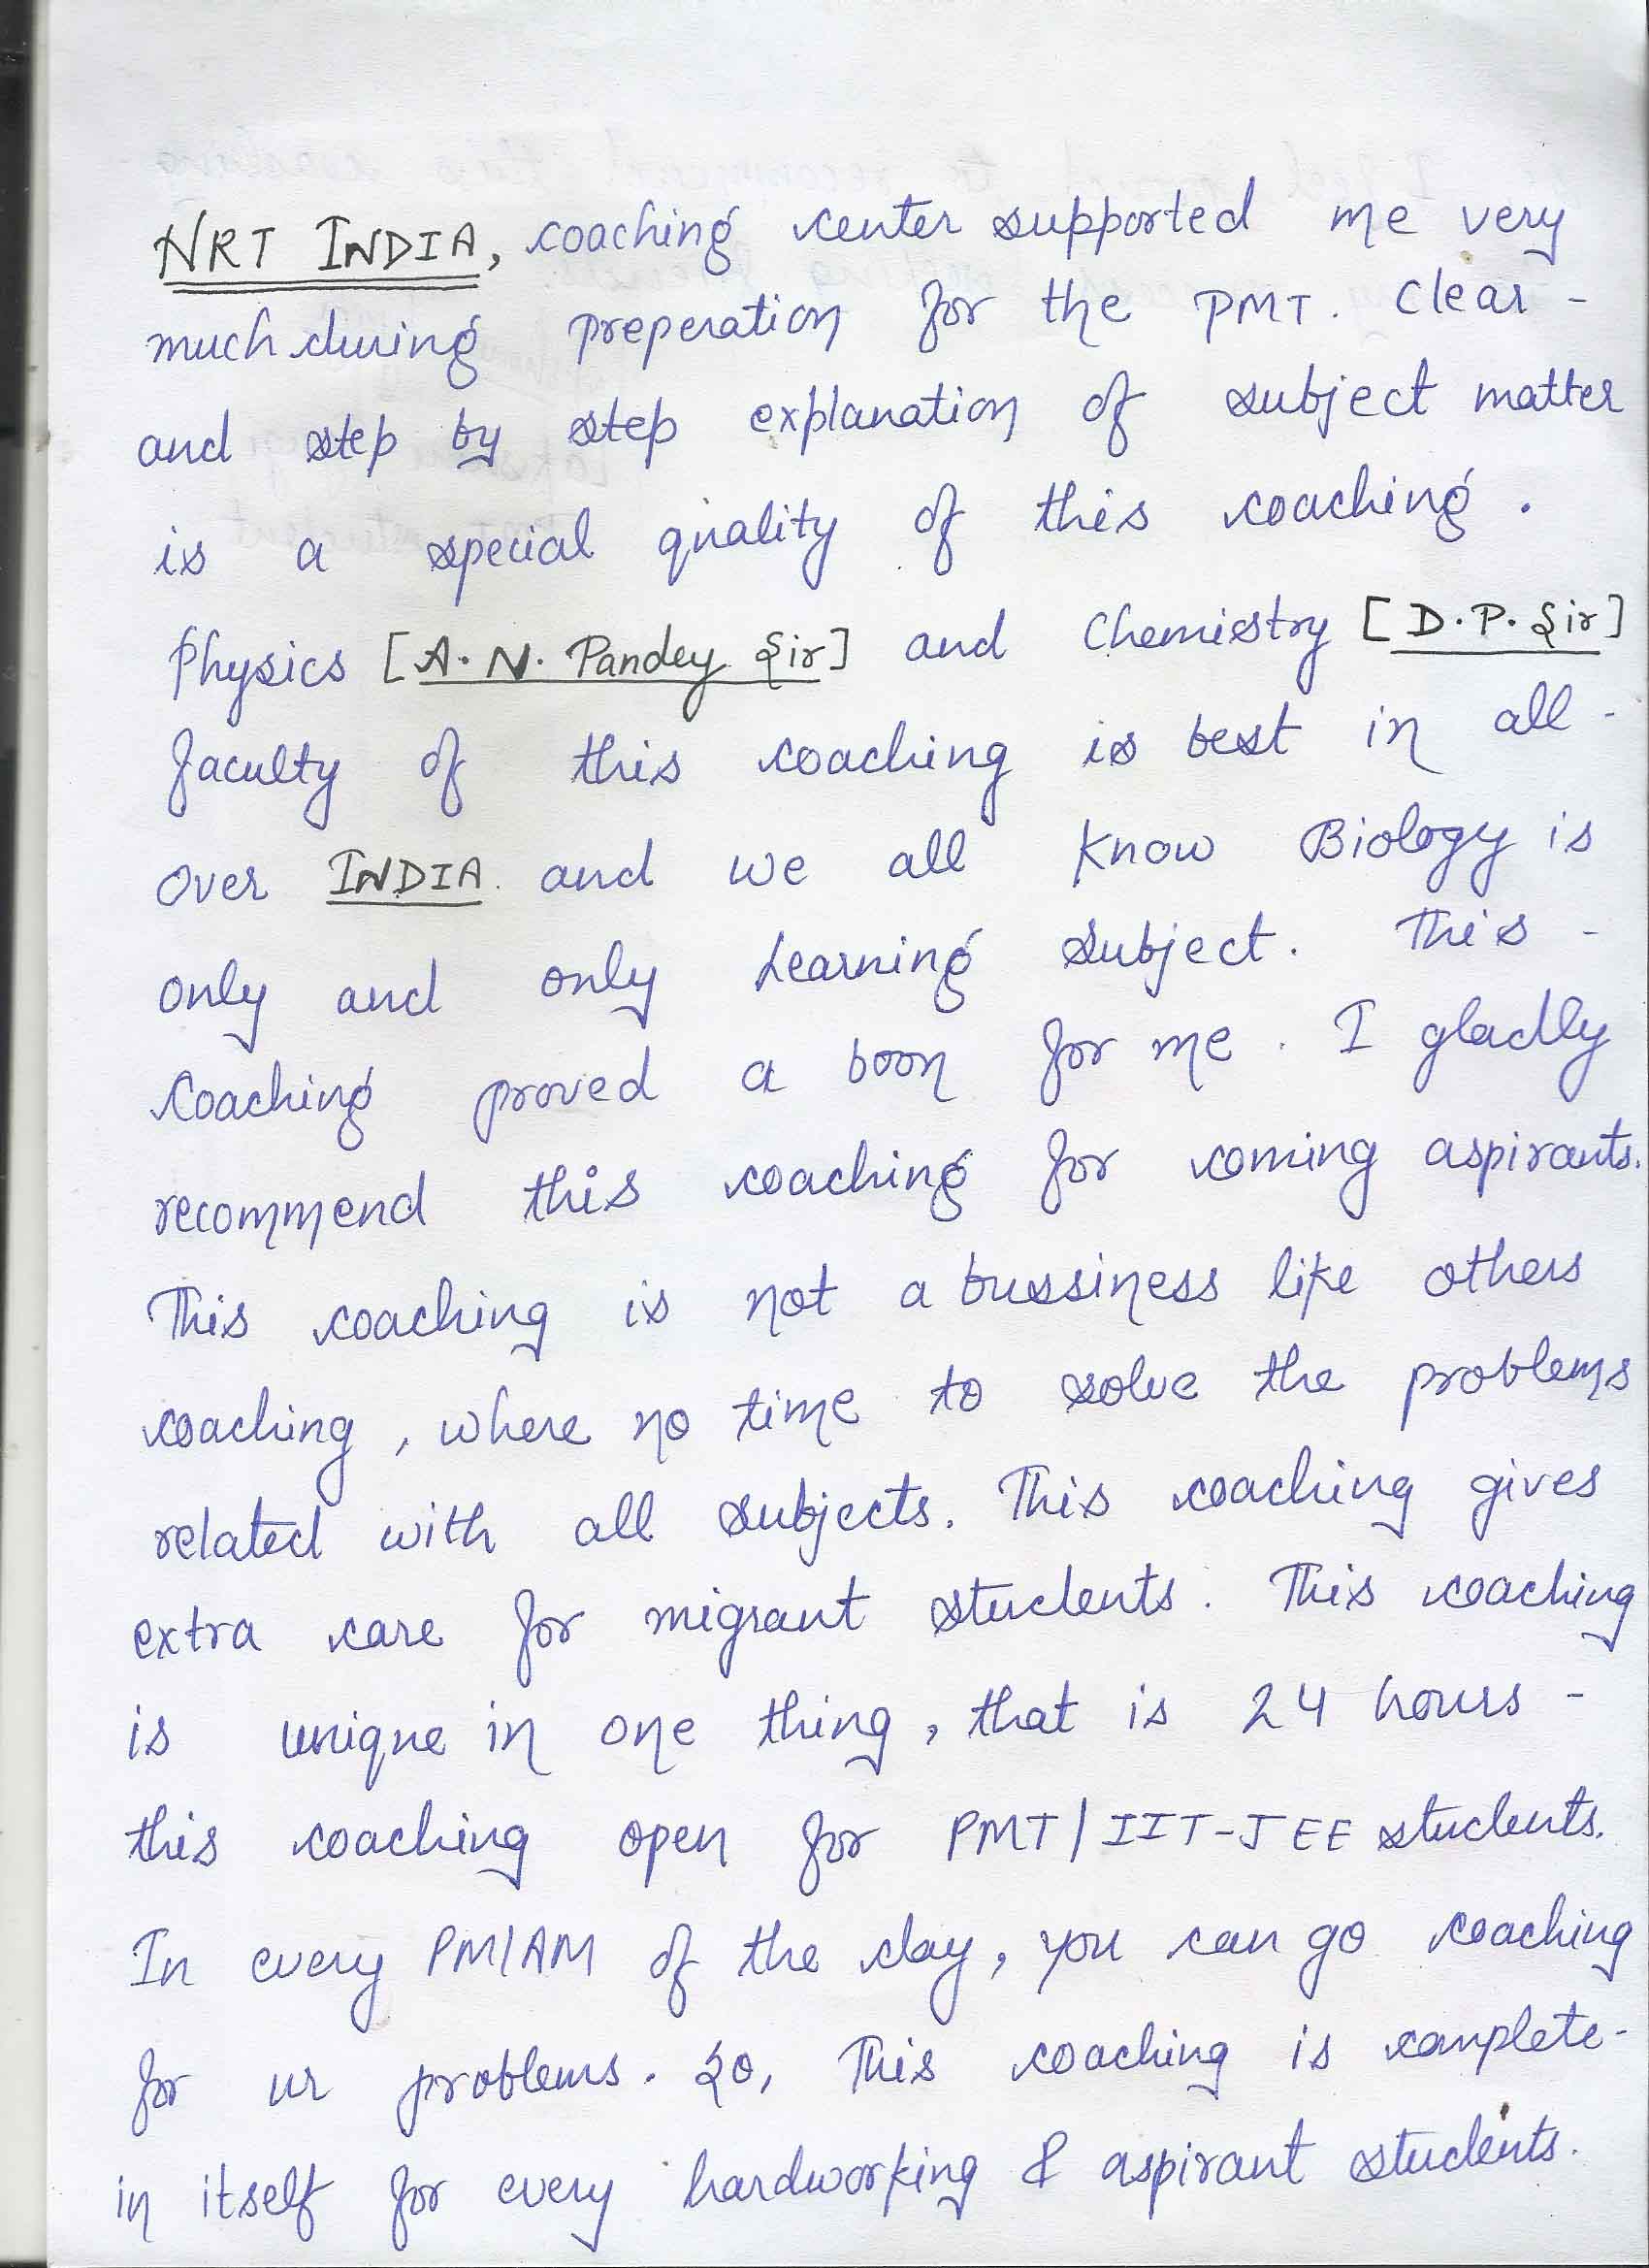 NRT INDIA, coaching center supported me very
much during preperation for the PMT. Clear -
and step by step explanation of subject matter
is a special quality of this coaching.
Physics [A. N. Pandey Sir] and Chemistry [D.P. Sir]
faculty of this coaching is best in all -
over INDIA. and we all know Biology is
only and only learning subject. This -
Coaching proved a boon for me. I gladly
recommend this coaching for coming aspirants.
This coaching is not a bussiness like others
coaching, where no time to solve the problems
related with all subjects. This coaching gives
extra care for migrant students. This coaching
is unique in one thing, that is 24 hours -
this coaching open for PMT/IIT-JEE students.
In every PM/AM of the day, you can go coaching
for ur problems. So, This coaching is complete-
in itself for every hardworking & aspirant students.